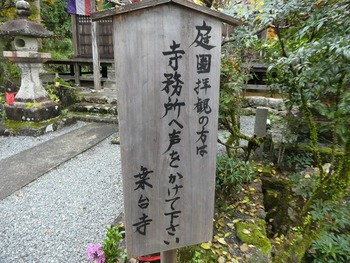 庭園拝観の方は
寺務所へ声をかけて下さい
楽台寺